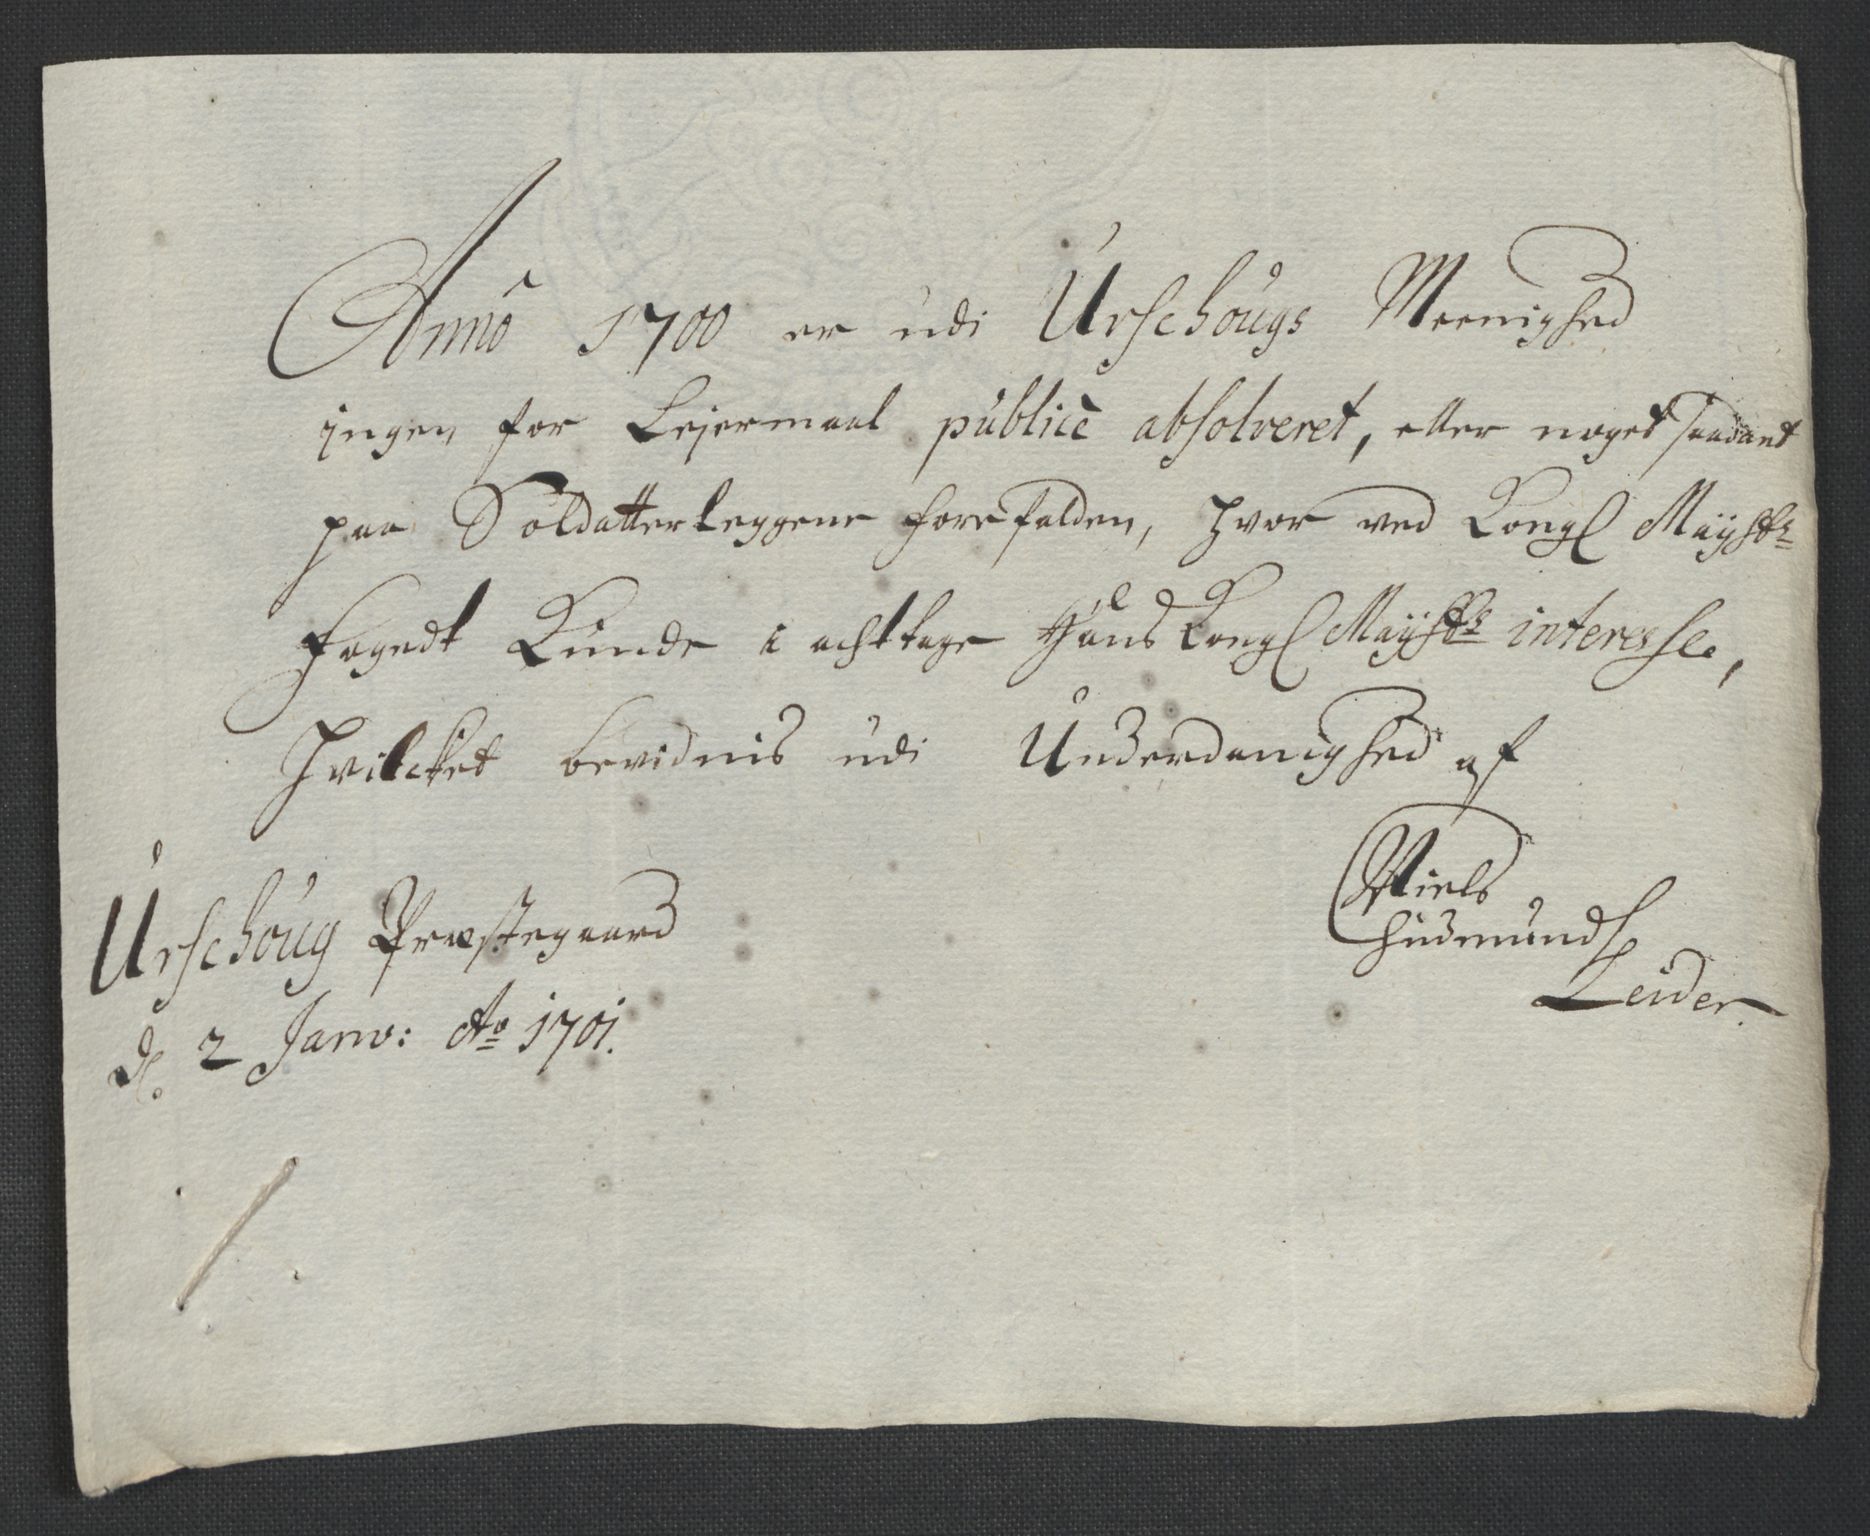 Anno 1700 er udi Urschougs Meenighed
ingen for Leiermaal publicè absolveret, eller noget saadant
paa Soldatterleggene forefalden, hvor ved Kongl Mayst&s
Fogedt Kunde i acht tage Hans Kongl Mayst&s interesse,
Hvilcket bevidnis udi Underdanighed af
Niels
Gudmunds
Leider.
Urschoug Præstegaard
d. 2 Janv: Ao 1701.